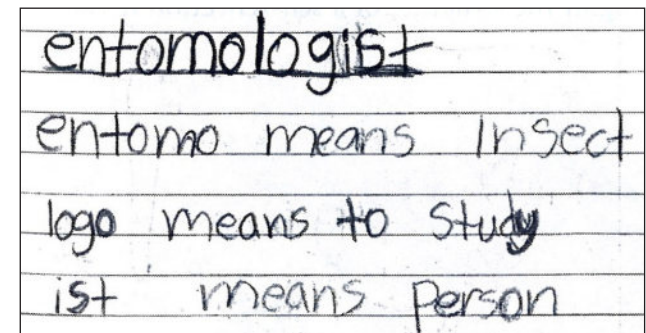 entomologist
entomo means Insect
logo means to study
ist means person